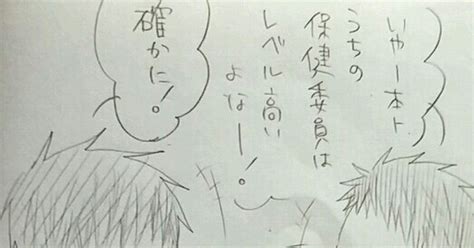 いやー本ト
うちの
保健委員は
レベル高い
よなー!。
確かに!。